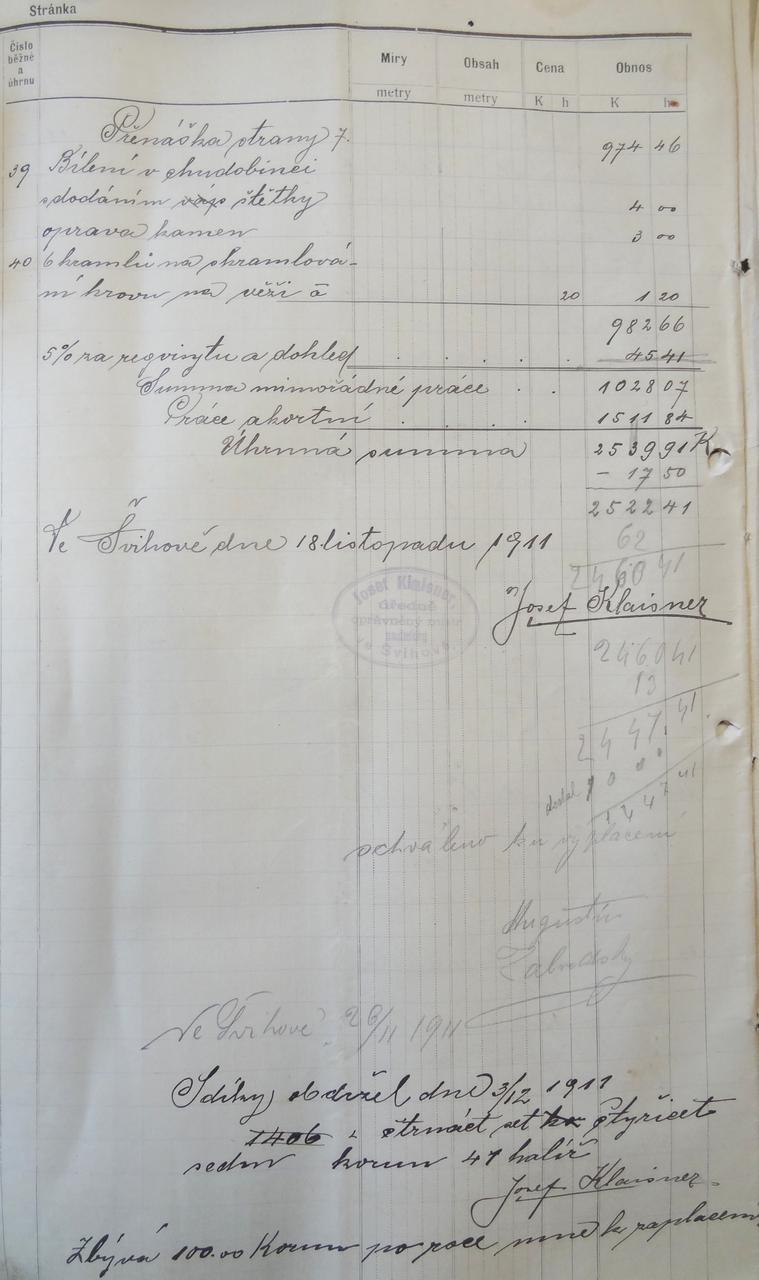 Stránka
Číslo běžné a úhrnu Míry metry Obsah metry Cena K h Obnos K h
Přenáška strany 7. 974 46
39 Bílení v chudobinci
s dodáním štětky 4 00
oprava kamen 3 00
40 6 kramlů na skramlová-
ní krovu na věži à 20 1 20
982 66
5% za regvisytu a dohled . . . . . 45 41
Summa mimořádné práce . . 1028 07
Práce akortní . . . . 1511 84
Úhrnná summa 2539 91 K
- 17 50
2522 41
Ve Švihově dne 18. listopadu 1911
62
2460 41
Josef Klaisner
Josef Klaisner,
úředně
oprávněný
ve Švihově.
2460 41
13
2447.41
1000
1447 41
schváleno ku vyplacení
Augustin
Ve Švihově 26/11 1911
S díky obdržel dne 3/12 1911
1406 čtrnáct set čtyřicet
sedm korun 41 haliř
Josef Klaisner
Zbývá 100.00 Korun po roce mne k zaplacení